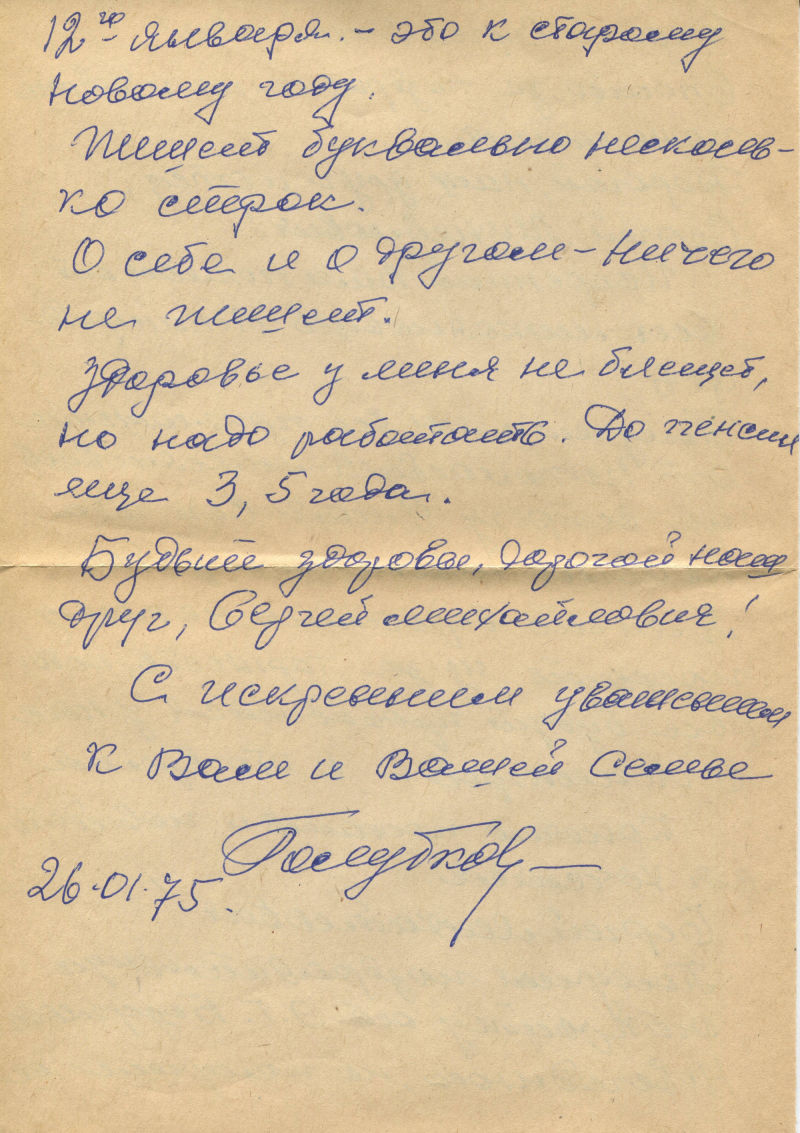 12го января. – это к старому
новому году.
Пишет буквально несколь-
ко строк.
О себе и о другом – ничего
не пишет.
Здоровье у меня не блещет,
но надо работать. До пенсии
еще 3,5 года.
Будьте здоровы, дорогой наш
друг, Сергей Михайлович!
С искренним уважением
к Вам и Вашей Семье
Голубков
26.01.75.